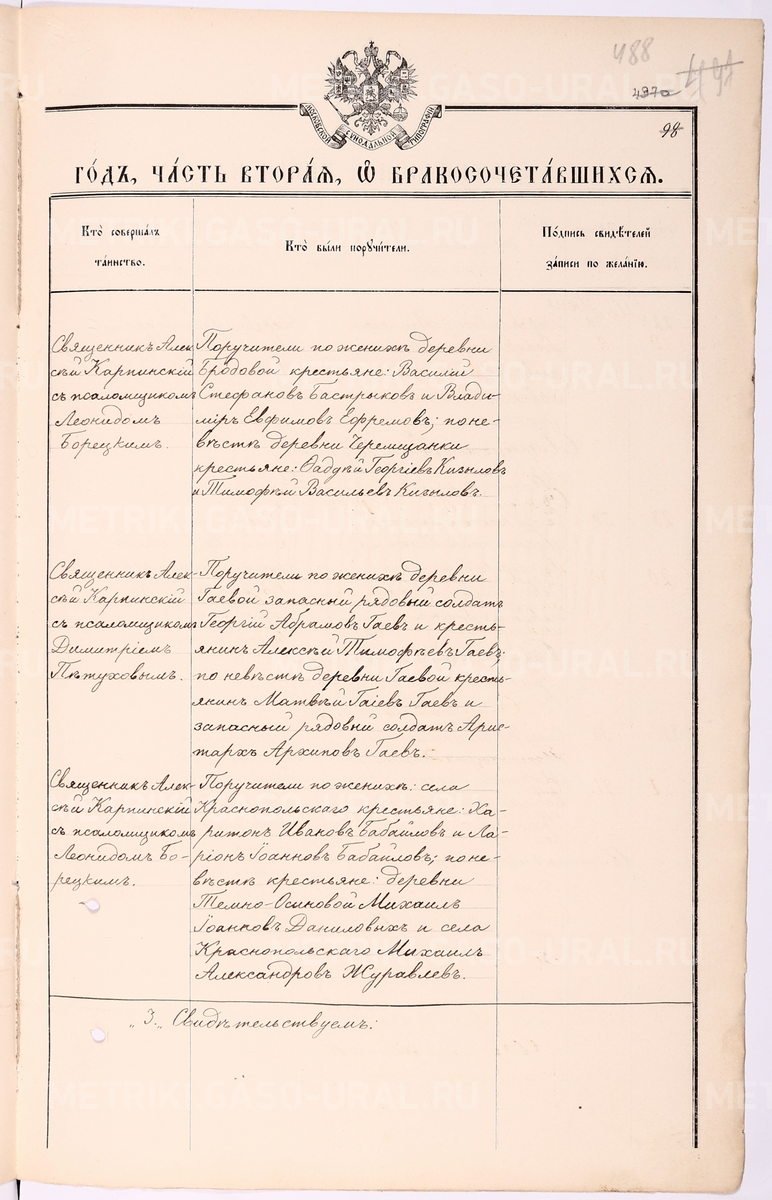 488
4970
98
МОСКОВСКОЙ СѴНОДАЛЬНОЙ ТИПОГРАФІИ
ГО́ДЪ, ЧА́СТЬ ВТОРА́Я, Ѡ҆ БРАКОСОЧЕТА́ВШИХСЯ.
Кто̀ соверша́лъ
та́инство.
Кто̀ бы́ли порꙋчи́тели.
По́дпись свидѣ́телей
за́писи по жела́нїю.
Священникъ Алек
сѣй Карпинскій
съ псаломщикомъ
Леонидомъ
Борецкимъ.
Поручители по женихѣ деревни
Бродовой крестьяне: Василій
Стефановъ Бастрыковъ и Влади-
міръ Евфимовъ Ефремовъ; по не-
вѣстѣ деревни Черемшанки
крестьяне: Ѳаддѣй Георгіевъ Кизиловъ
и Тимофѣй Васильевъ Кизиловъ.
Священникъ Алек-
сѣй Карпинскій
съ псаломщикомъ
Димитріемъ
Пѣтуховымъ.
Поручители по женихѣ деревни
Гаевой запасный рядовый солдатъ
Георгій Абрамовъ Гаевъ и кресть-
янинъ Алексѣй Тимофѣевъ Гаевъ;
по невѣстѣ деревни Гаевой кресть-
янин Матвѣй Гаіевъ Гаевъ и
запасный рядовый солдатъ Арис-
тархъ Архиповъ Гаевъ.
Священникъ Алек-
сѣй Карпинскій
съ псаломщикомъ
Леонидомъ Бо-
рецкимъ.
Поручители по женихѣ: села
Краснопольскаго крестьяне: Ха-
ритонъ Ивановъ Бабайловъ и Ла-
ріонъ Іоанновъ Бабайловъ; по не-
вѣстѣ крестьяне: деревни
Темно-Осиновой Михаилъ
Іоанновъ Даниловыхъ и села
Краснопольскаго Михаилъ
Александровъ Журавлевъ.
„3„ Свидѣтельствуемъ:
METRIKI.GASO-URAL.RU